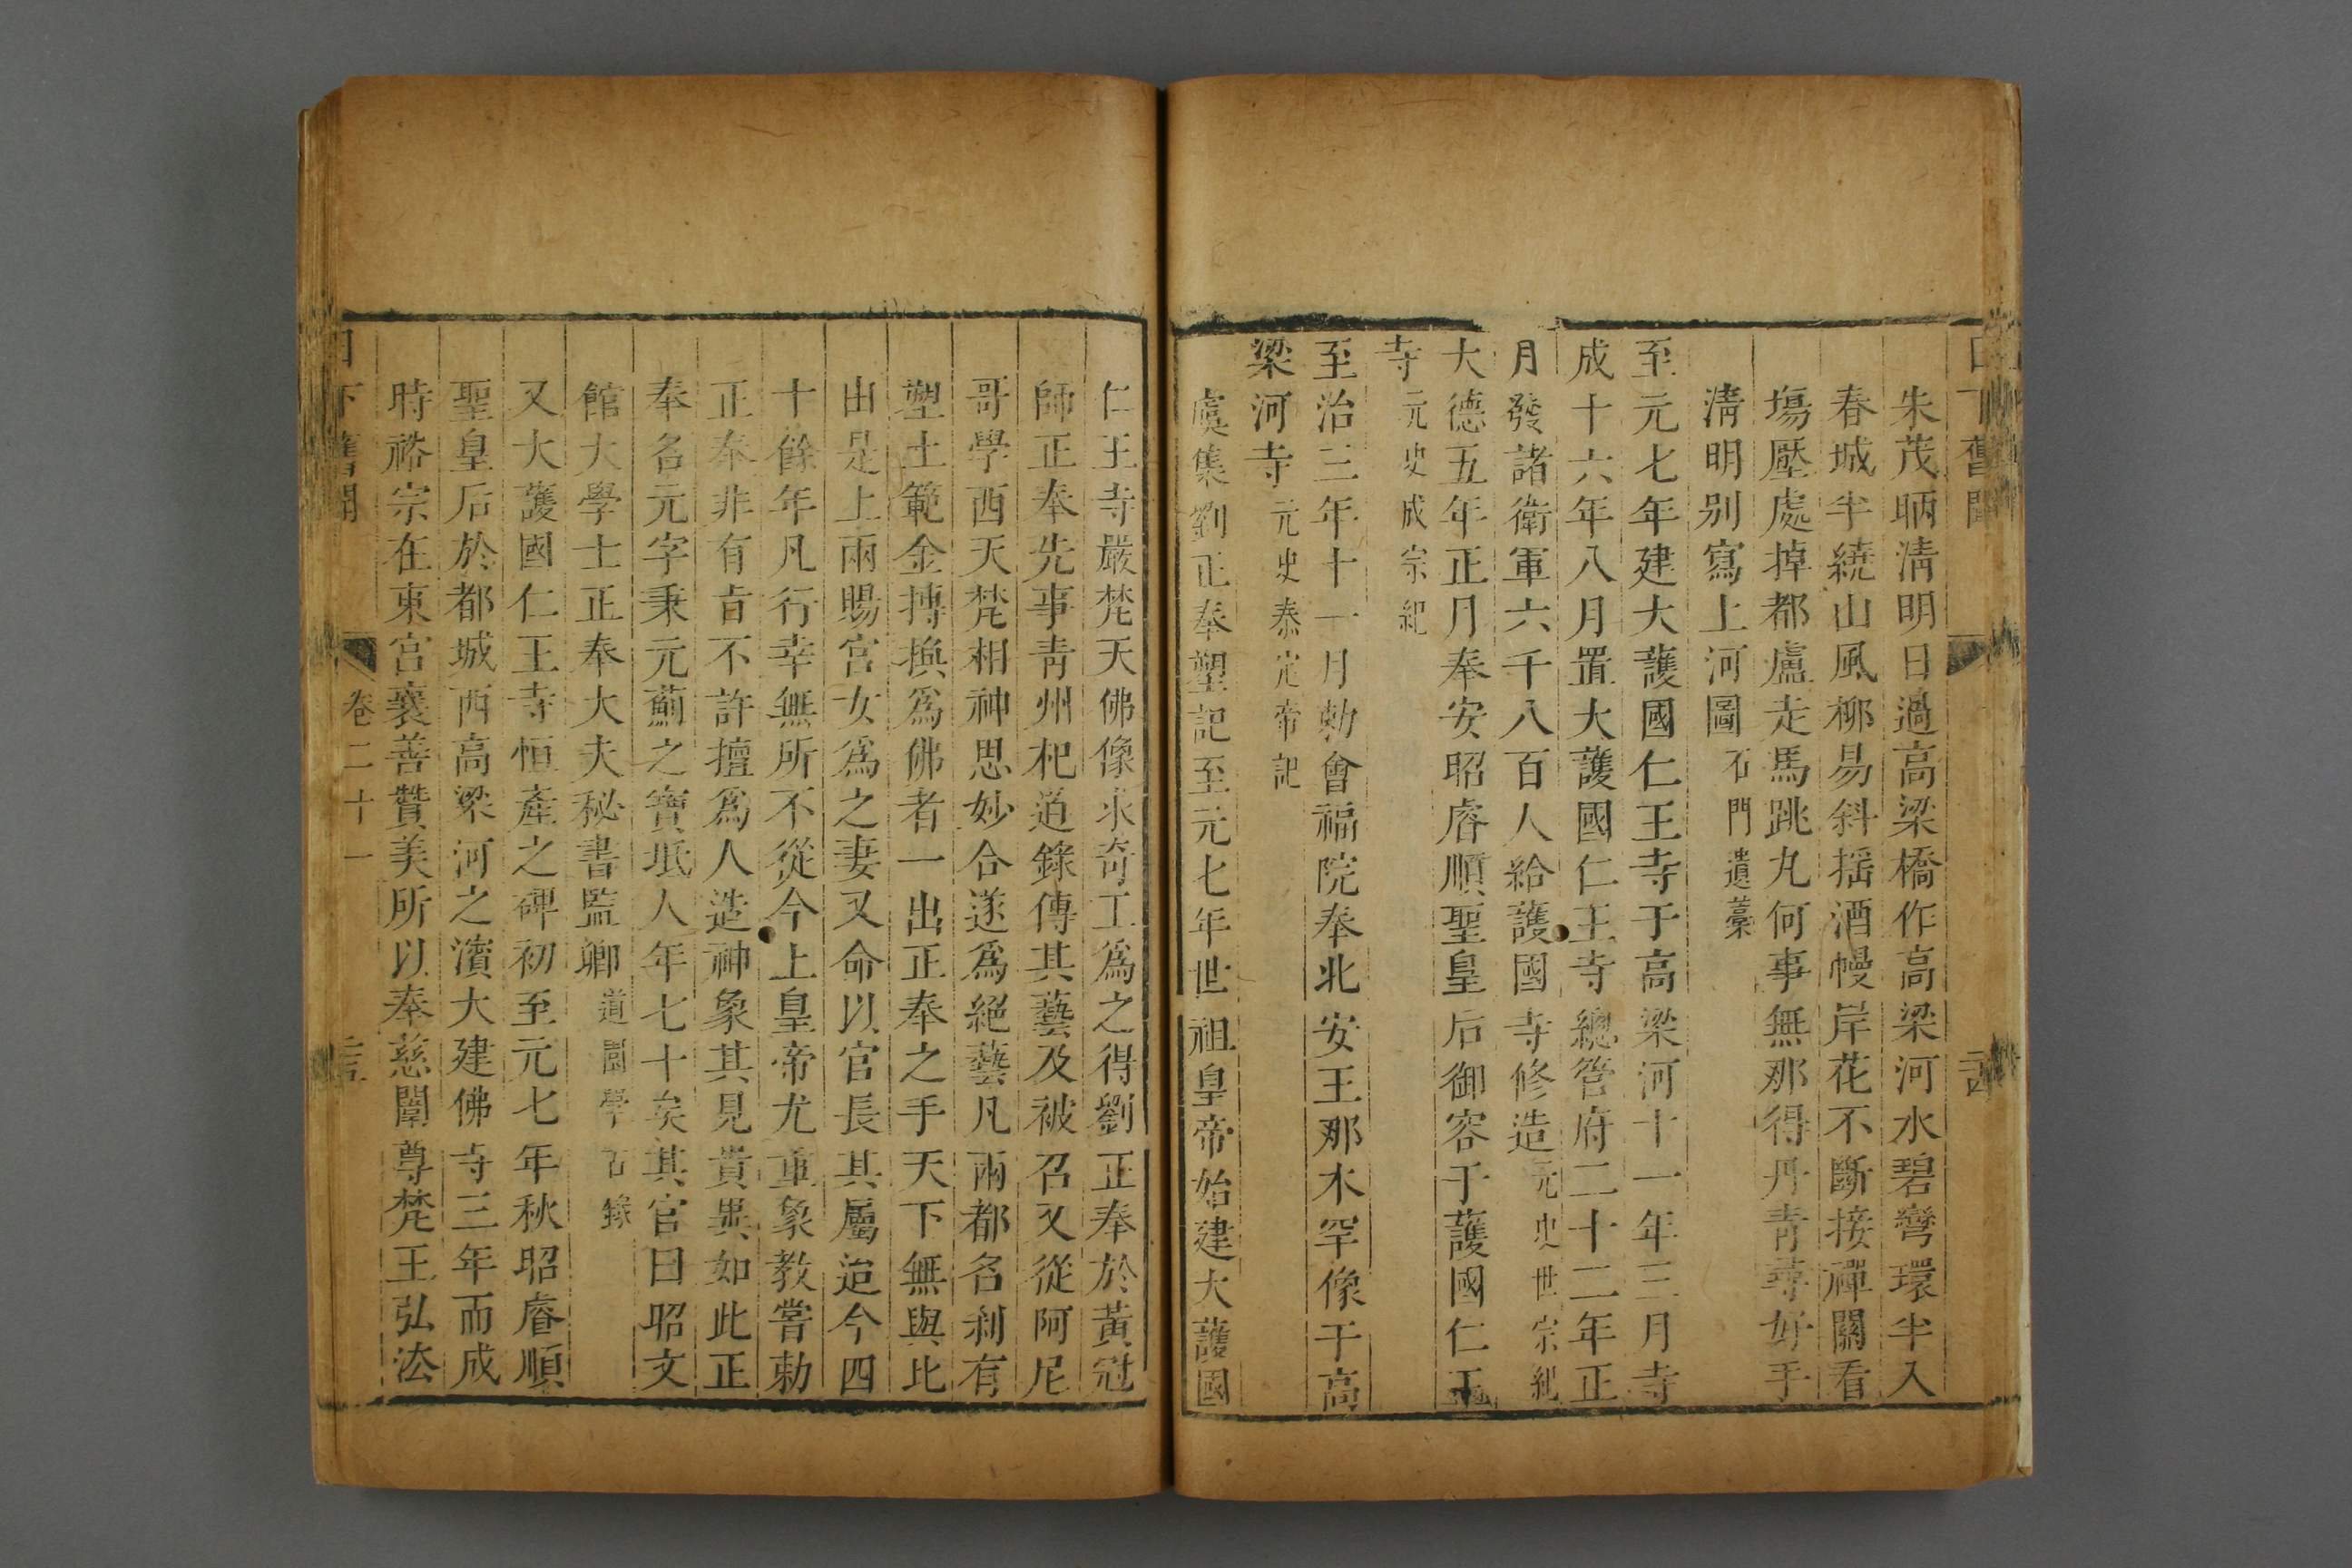 朱茂晭淸明日過高梁橋作高梁河水碧彎環半入
春城半繞山風柳易斜揺酒幔岸花不斷接禪關看
塲壓處掉都盧走馬跳丸何事無那得丹青尋好手
淸明别寫上河圖石門遺藁
至元七年建大護國仁王寺于高梁河十一年三月寺
成十六年八月置大護國仁王寺總管府二十二年正
月發諸衛軍六千八百人給護國寺修造元史世宗紀
大德五年正月奉安昭睿順聖皇后御容于護國仁王
寺元史成宗紀
至治三年十一月勅會福院奉北安王那木罕像于高
梁河寺元史泰定帝記
虞集劉正奉塑記至元七年世祖皇帝始建大護國
仁王寺嚴梵天佛像求奇工爲之得劉正奉於黃冠
師正奉先事青州杞道錄傳其藝及被召又從阿尼
哥學西天梵相神思妙合遂爲絕藝凡兩都名刹有
塑土範金摶換爲佛者一出正奉之手天下無與比
由是上兩賜宮女爲之妻又命以官長其屬迨今四
十餘年凡行幸無所不從今上皇帝尤重象教嘗勅
正奉非有旨不許擅爲人造神象其見貴異如此正
奉名元字秉元薊之寶坻人年七十矣其官曰昭文
館大學士正奉大夫秘書監卿道園學古錄
又大護國仁王寺恒產之碑初至元七年秋昭睿順
聖皇后於都城西高梁河之濱大建佛寺三年而成
時裕宗在東宮襄善贊美所以奉慈闈尊梵王弘法
日下舊聞 卷二十一